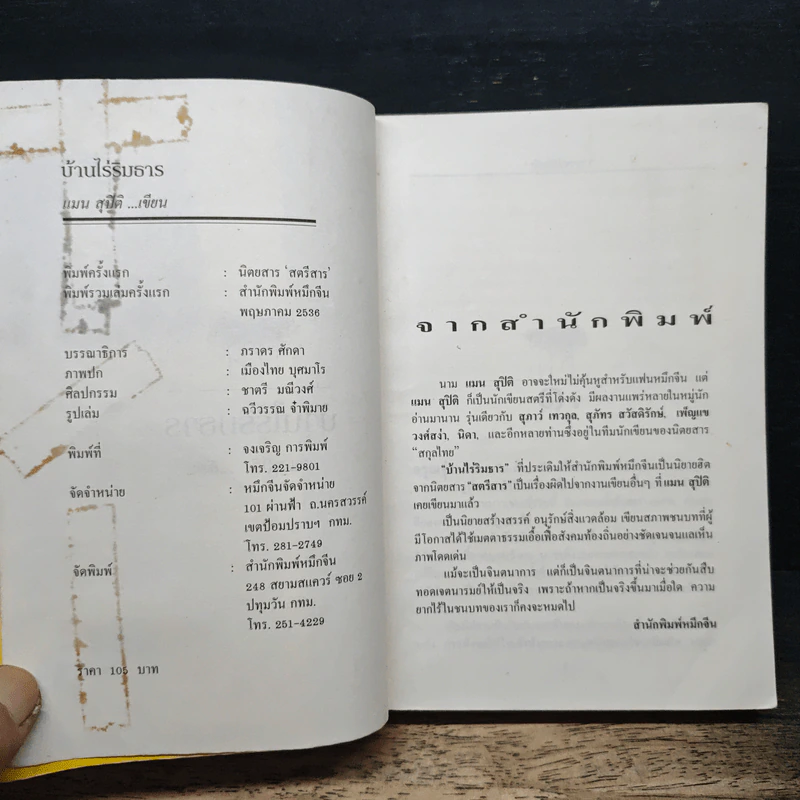 บ้านไร่ริมธาร
แมน สุปิติ ...เขียน
พิมพ์ครั้งแรก : นิตยสาร ‘สตรีสาร’
พิมพ์รวมเล่มครั้งแรก : สำนักพิมพ์หมึกจีน
พฤษภาคม 2536
บรรณาธิการ : ภราดร ศักดา
ภาพปก : เมืองไทย บุศมาโร
ศิลปกรรม : ชาตรี มณีวงศ์
รูปเล่ม : ฉวีวรรณ จำพิมาย
พิมพ์ที่ : จงเจริญ การพิมพ์
โทร. 221-9801
จัดจำหน่าย : หมึกจีนจัดจำหน่าย
101 ผ่านฟ้า ถ.นครสวรรค์
เขตป้อมปราบฯ กทม.
โทร. 281-2749
จัดพิมพ์ : สำนักพิมพ์หมึกจีน
248 สยามสแควร์ ซอย 2
ปทุมวัน กทม.
โทร. 251-4229
ราคา 105 บาท
จากสำนักพิมพ์
นาม แมน สุปิติ อาจจะใหม่ไม่คุ้นหูสำหรับแฟนหมึกจีน แต่
แมน สุปิติ ก็เป็นนักเขียนสตรีที่โด่งดัง มีผลงานแพร่หลายในหมู่นัก
อ่านมานาน รุ่นเดียวกับ สุภาว์ เทวกุล, สุภัทร สวัสดิรักษ์, เพ็ญแข
วงศ์สง่า, นิดา, และอีกหลายท่านซึ่งอยู่ในทีมนักเขียนของนิตยสาร
“สกุลไทย”
“บ้านไร่ริมธาร” ที่ประเดิมให้สำนักพิมพ์หมึกจีนเป็นนิยายฮิต
จากนิตยสาร “สตรีสาร” เป็นเรื่องผิดไปจากงานเขียนอื่นๆ ที่ แมน สุปิติ
เคยเขียนมาแล้ว
เป็นนิยายสร้างสรรค์ อนุรักษ์สิ่งแวดล้อม เขียนสภาพชนบทที่ผู้
มีโอกาสได้ใช้เมตตาธรรมเอื้อเฟื้อสังคมท้องถิ่นอย่างชัดเจนจนแลเห็น
ภาพโดดเด่น
แม้จะเป็นจินตนาการ แต่ก็เป็นจินตนาการที่น่าจะช่วยกันสืบ
ทอดเจตนารมย์ให้เป็นจริง เพราะถ้าหากเป็นจริงขึ้นมาเมื่อใด ความ
ยากไร้ในชนบทของเราก็คงจะหมดไป
สำนักพิมพ์หมึกจีน